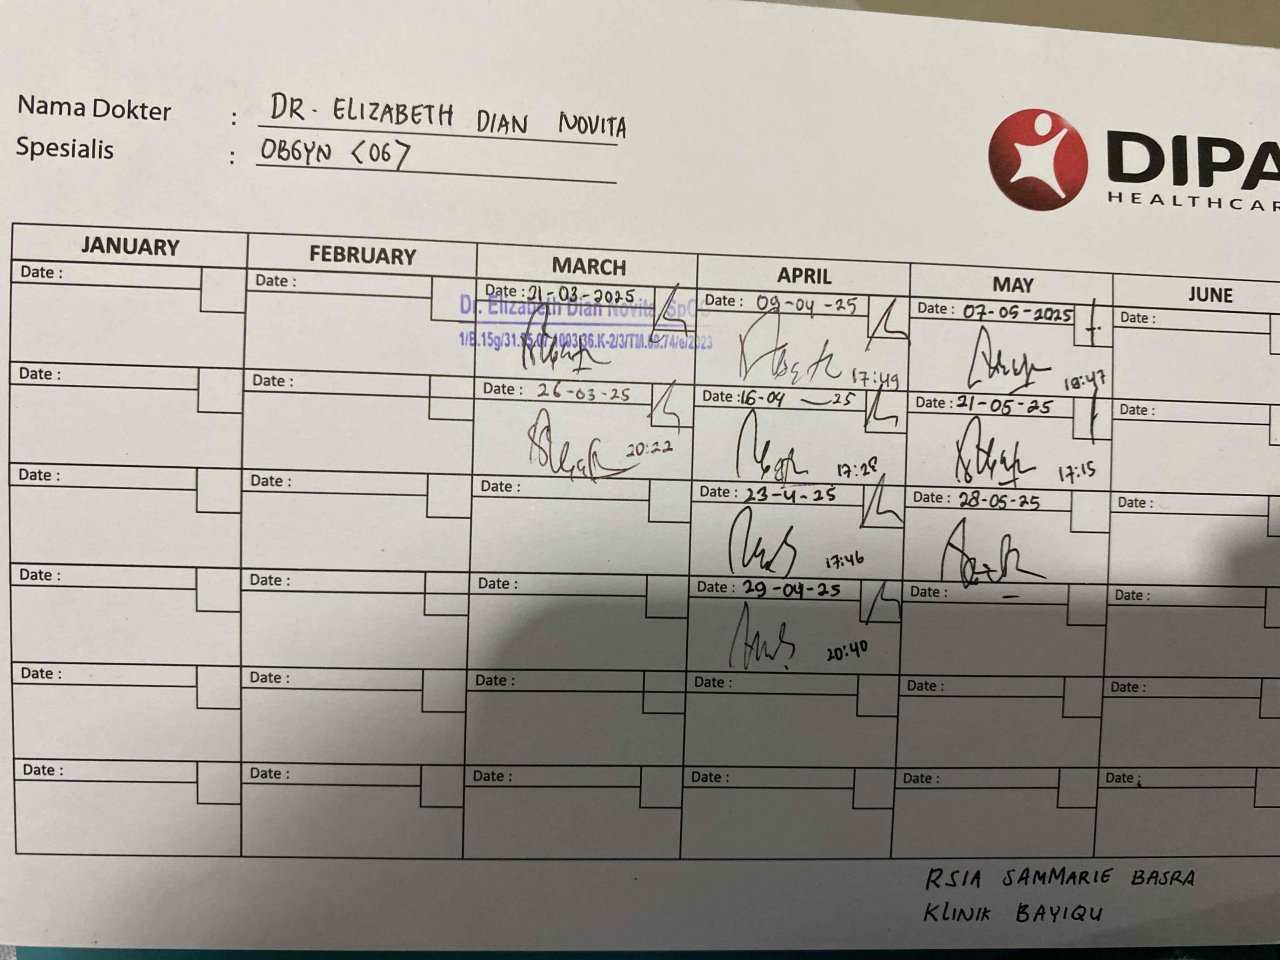 Nama Dokter : DR. ELIZABETH DIAN NOVITA
Spesialis : OBGYN <06>
DIPA
HEALTHCAR
JANUARY FEBRUARY MARCH APRIL MAY JUNE
Date : Date : Date : 21-03-2025 Date : 09-04-25 Date : 07-05-2025 Date :
Dr. Elizabeth Dian Novita, SpOG
17:49 18:47
Date : Date : Date : 26-03-25 Date : 16-04-25 Date : 21-05-25 Date :
20:22 17:28 17:15
Date : Date : Date : Date : 23-4-25 Date : 28-05-25 Date :
17:46
Date : Date : Date : Date : 29-04-25 Date : Date :
20:40
Date : Date : Date : Date : Date : Date :
Date : Date : Date : Date : Date : Date :
RSIA SAMMARIE BASRA
KLINIK BAYIQU